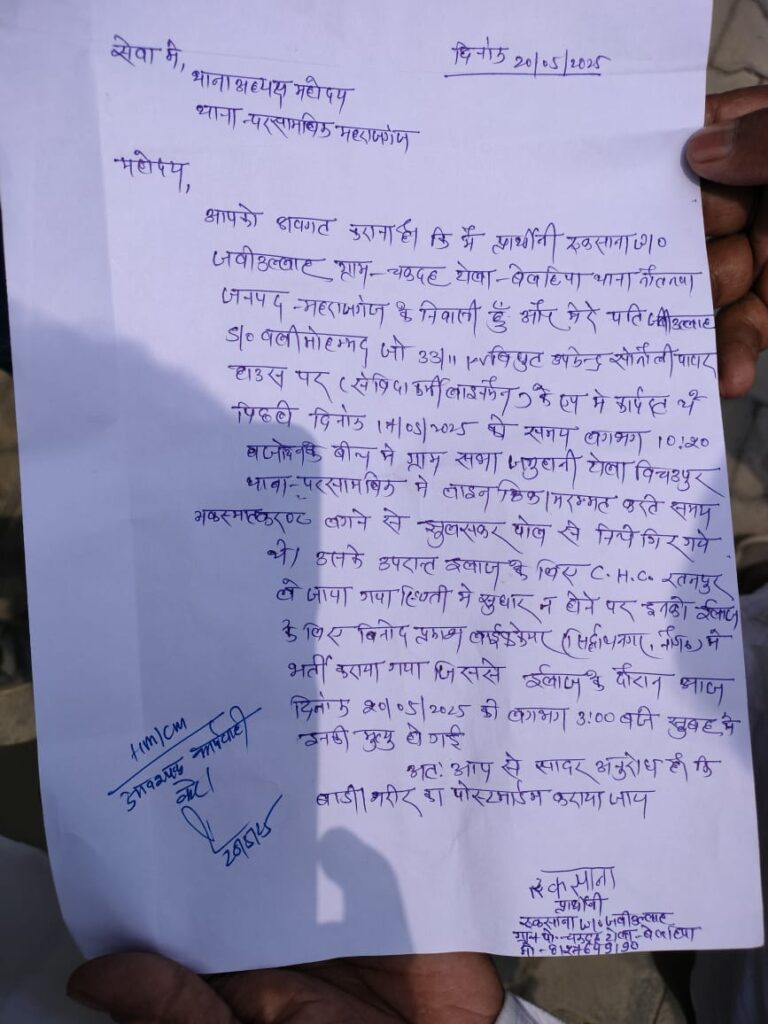 दिनांक 20/05/2025
सेवा में,
थानाध्यक्ष महोदय
थाना - परसामलिक महराजगंज
महोदय,
आपको अवगत कराना है। कि मैं प्रार्थीनी रुकसाना W/O
जबीउल्लाह ग्राम - चकदह टोला - बेलहिया थाना नौतनवा
जनपद - महराजगंज के निवासी हूँ और मेरे पति जबीउल्लाह
S/o वलीमोहम्मद जो 33/11 KV विद्युत उपकेन्द्र सोनौली पावर
हाउस पर (संविदा कर्मी लाइनमैन) के रूप में कार्यरत थे
पिछली दिनांक 14/05/2025 को समय लगभग 10:20
बजे के बीच में ग्राम सभा टोला
थाना - परसामलिक में लाइन मरम्मत करते समय
अकस्मात करण्ट लगने से झुलसकर पोल से निचे गिर गये
थे। उसके उपरान्त ईलाज के लिए C.H.C. रतनपुर
ले जाया गया स्थिती में सुधार न होने पर इनको ईलाज
के लिए (सिद्धार्थनगर, ) में
भर्ती कराया गया जिससे ईलाज के दौरान आज
दिनांक 20/05/2025 को लगभग 3:00 बजे सुबह में
इनकी मृत्यु हो गई
अतः आप से सादर अनुरोध है। कि
बाडी/शरीर का पोस्टमार्डम कराया जाय
HM/CM
आवश्यक कार्यवाही
करें।
20/5/25
रुकसाना
प्रार्थीनी
रुकसाना W/O जबीउल्लाह
ग्राम पो.- चकदह टोला - बेलहिया
मो -